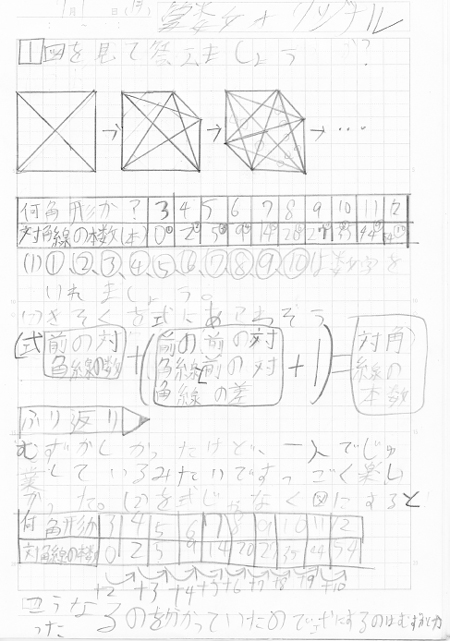 算数 オリジナル
1 図を見て答えましょう
何角形か? 3 4 5 6 7 8 9 10 11 12
対角線の本数(本) 0① 2② 5③ 9④ 14⑤ 20⑥ 27⑦ 35⑧ 44⑨ 54⑩
(1)①、②、③、④、⑤、⑥、⑦、⑧、⑨、⑩は数字を
いれましょう。
(2)きそくを式にあらわそう
(式 前の対角線の数 + (前の前の対角線と前の対角線の差 + 1) = 対角線の本数
ふり返り
むずかしかったけど、一人でじゅ
業しているみたいですっごく楽し
かった。(2)を式じゃなく図にすると
何角形か 3 4 5 6 7 8 9 10 11 12
対角線の本数 0 2 5 9 14 20 27 35 44 54
+2 +3 +4 +5 +6 +7 +8 +9 +10
こうなるのを分かっていたので式にするのはむずか
った